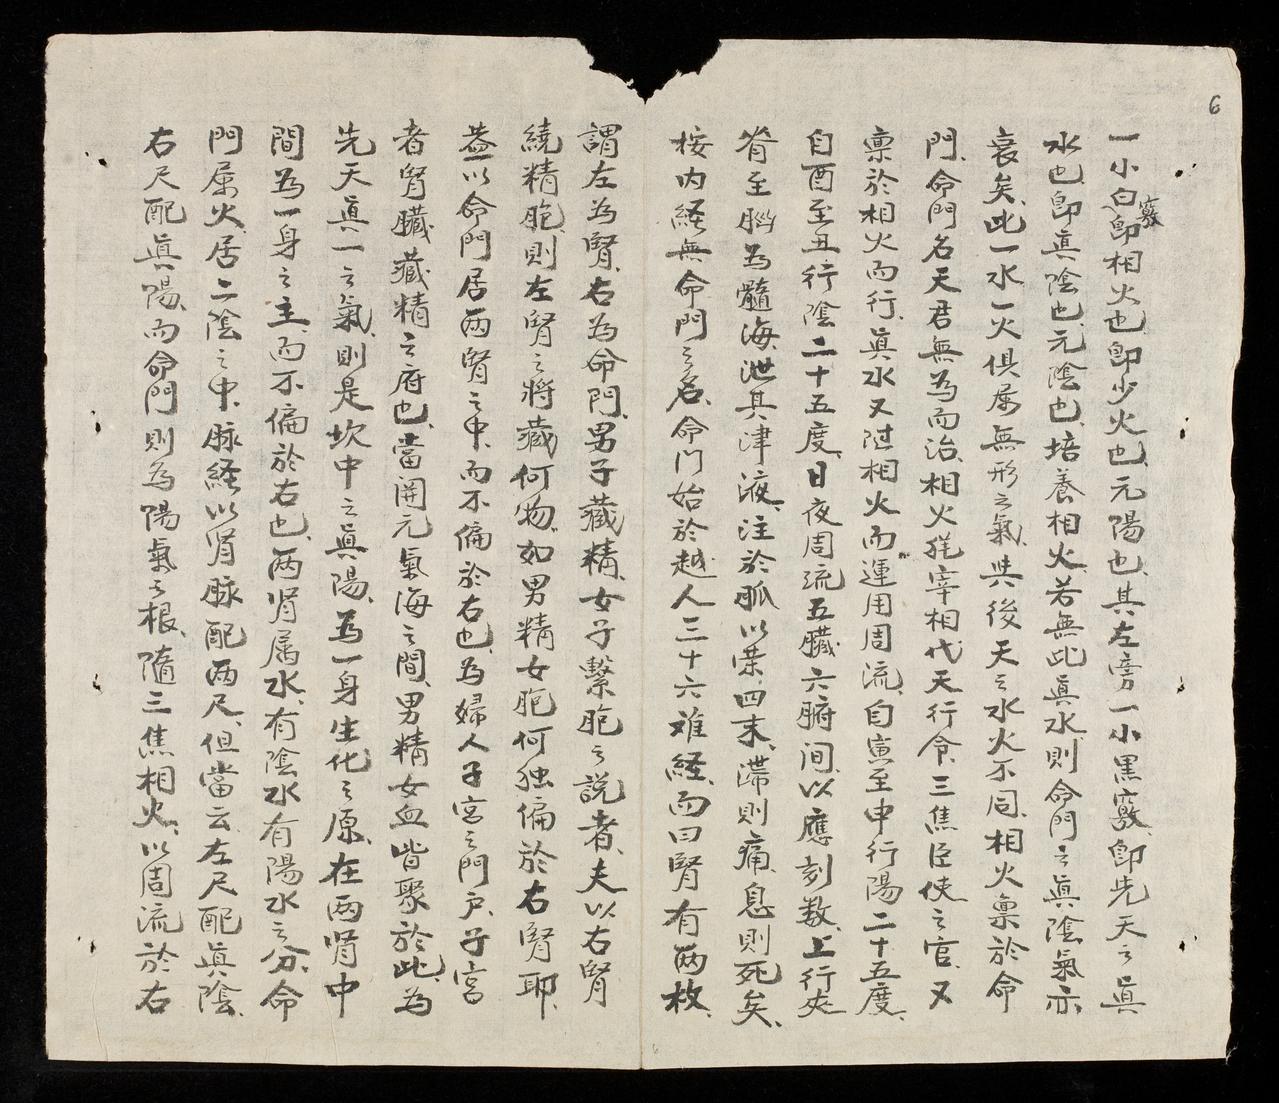 6
一小白竅即相火也、即少火也、元陽也、其左旁一小黑竅、即先天之眞
水也、即眞陰也、元陰也、培養相火、若無此眞水、則命門之眞陰氣亦
衰矣、此一水一火俱屬無形之氣、與後天之水火不同、相火稟於命
門、命門名天君無為而治、相火猶宰相代天行令、三焦臣使之官、又
稟於相火而行、眞水又随相火而運用周流、自寅至申行陽二十五度、
自酉至丑行陰二十五度、日夜周流五臓六腑间、以應刻数、上行夾
脊至腦為髓海、泄其津液、注於脈、以荣四末、滞則痛、息則死矣、
按内経無命門之名、命门始於越人三十六难経、而曰腎有两枚、
謂左為腎、右為命門、男子藏精、女子繫胞之説者、夫以右腎
繞精胞、則左腎之將藏何物、如男精女胞何独偏於右腎耶、
蓋以命門居两腎之中、而不偏於右也、為婦人子宮之門户、子宮
者腎臓藏精之府也、當関元氣海之間、男精女血皆聚於此、為
先天眞一之氣、則是坎中之眞陽、為一身生化之原、在两肾中
間為一身之主、而不偏於右也、两肾属水、有陰水有陽水之分、命
門屬火、居二陰之中、脉経以肾脉配两尺、但當云左尺配眞陰、
右尺配眞陽、而命門則為陽氣之根、隨三焦相火、以周流於右